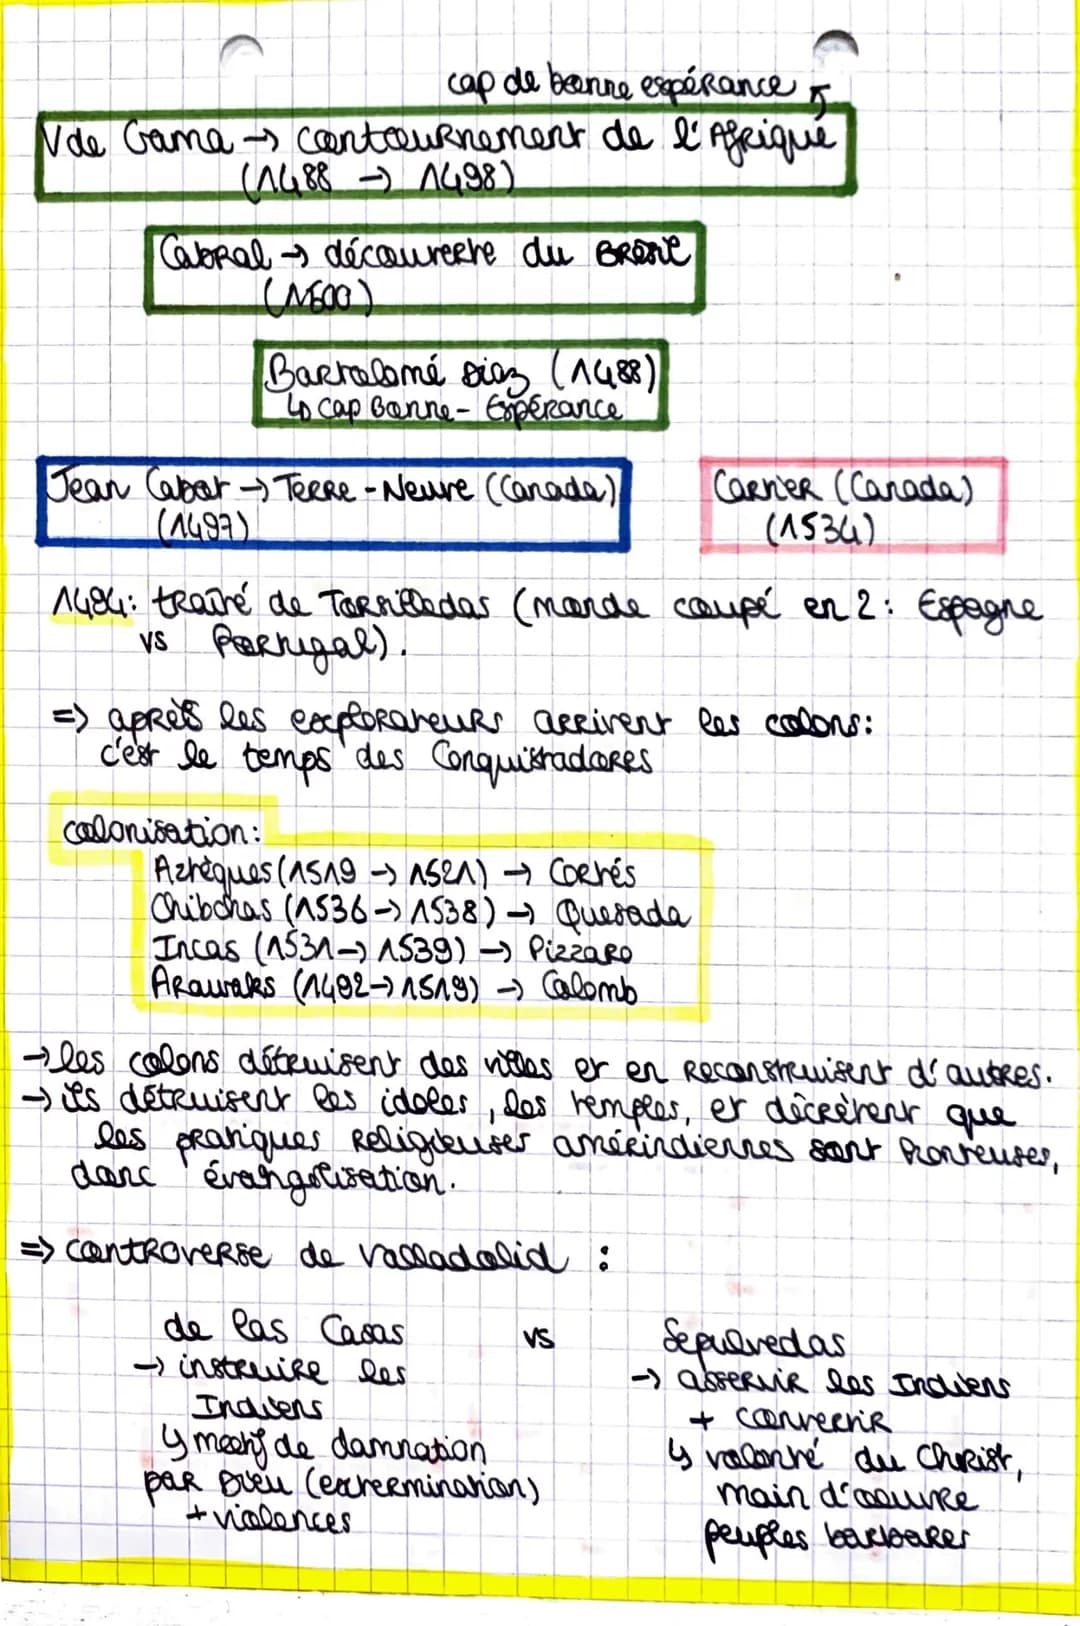 cap de bonne espérance ↖
V de Gama → contournement de l'Afrique
(1488 → 1498)
Cabral → découverte du Brésil
(1500)
Bartolomé Diaz (1488)
↳ Cap Bonne-Espérance
Jean Cabot → Terre-Neuve (Canada)
(1497)
Cartier (Canada)
(1534)
1494: traité de Torsilledas (monde coupé en 2: Espagne
vs Portugal).
=> après les explorateurs arrivent les colons:
c'est le temps des Conquistadores
colonisation:
Aztèques (1519 → 1521) → Cortés
Chibchas (1536 → 1538) → Quesada
Incas (1531 → 1539) → Pizzaro
Arawaks (1492 → 1519) → Colomb
→ les colons détruisent des villes et en reconstruisent d'autres.
→ ils détruisent les idoles, les temples, et décrètent que
les pratiques religieuses amérindiennes sont honteuses,
donc évangélisation.
=> controverse de Valladolid :
de las Casas vs Sepulvedas
→ instruire les
Indiens
↳ motif de damnation
par Dieu (extermination)
+ violences
→ asservir les Indiens
+ convertir
↳ volonté du Christ,
main d'oeuvre
peuples barbares